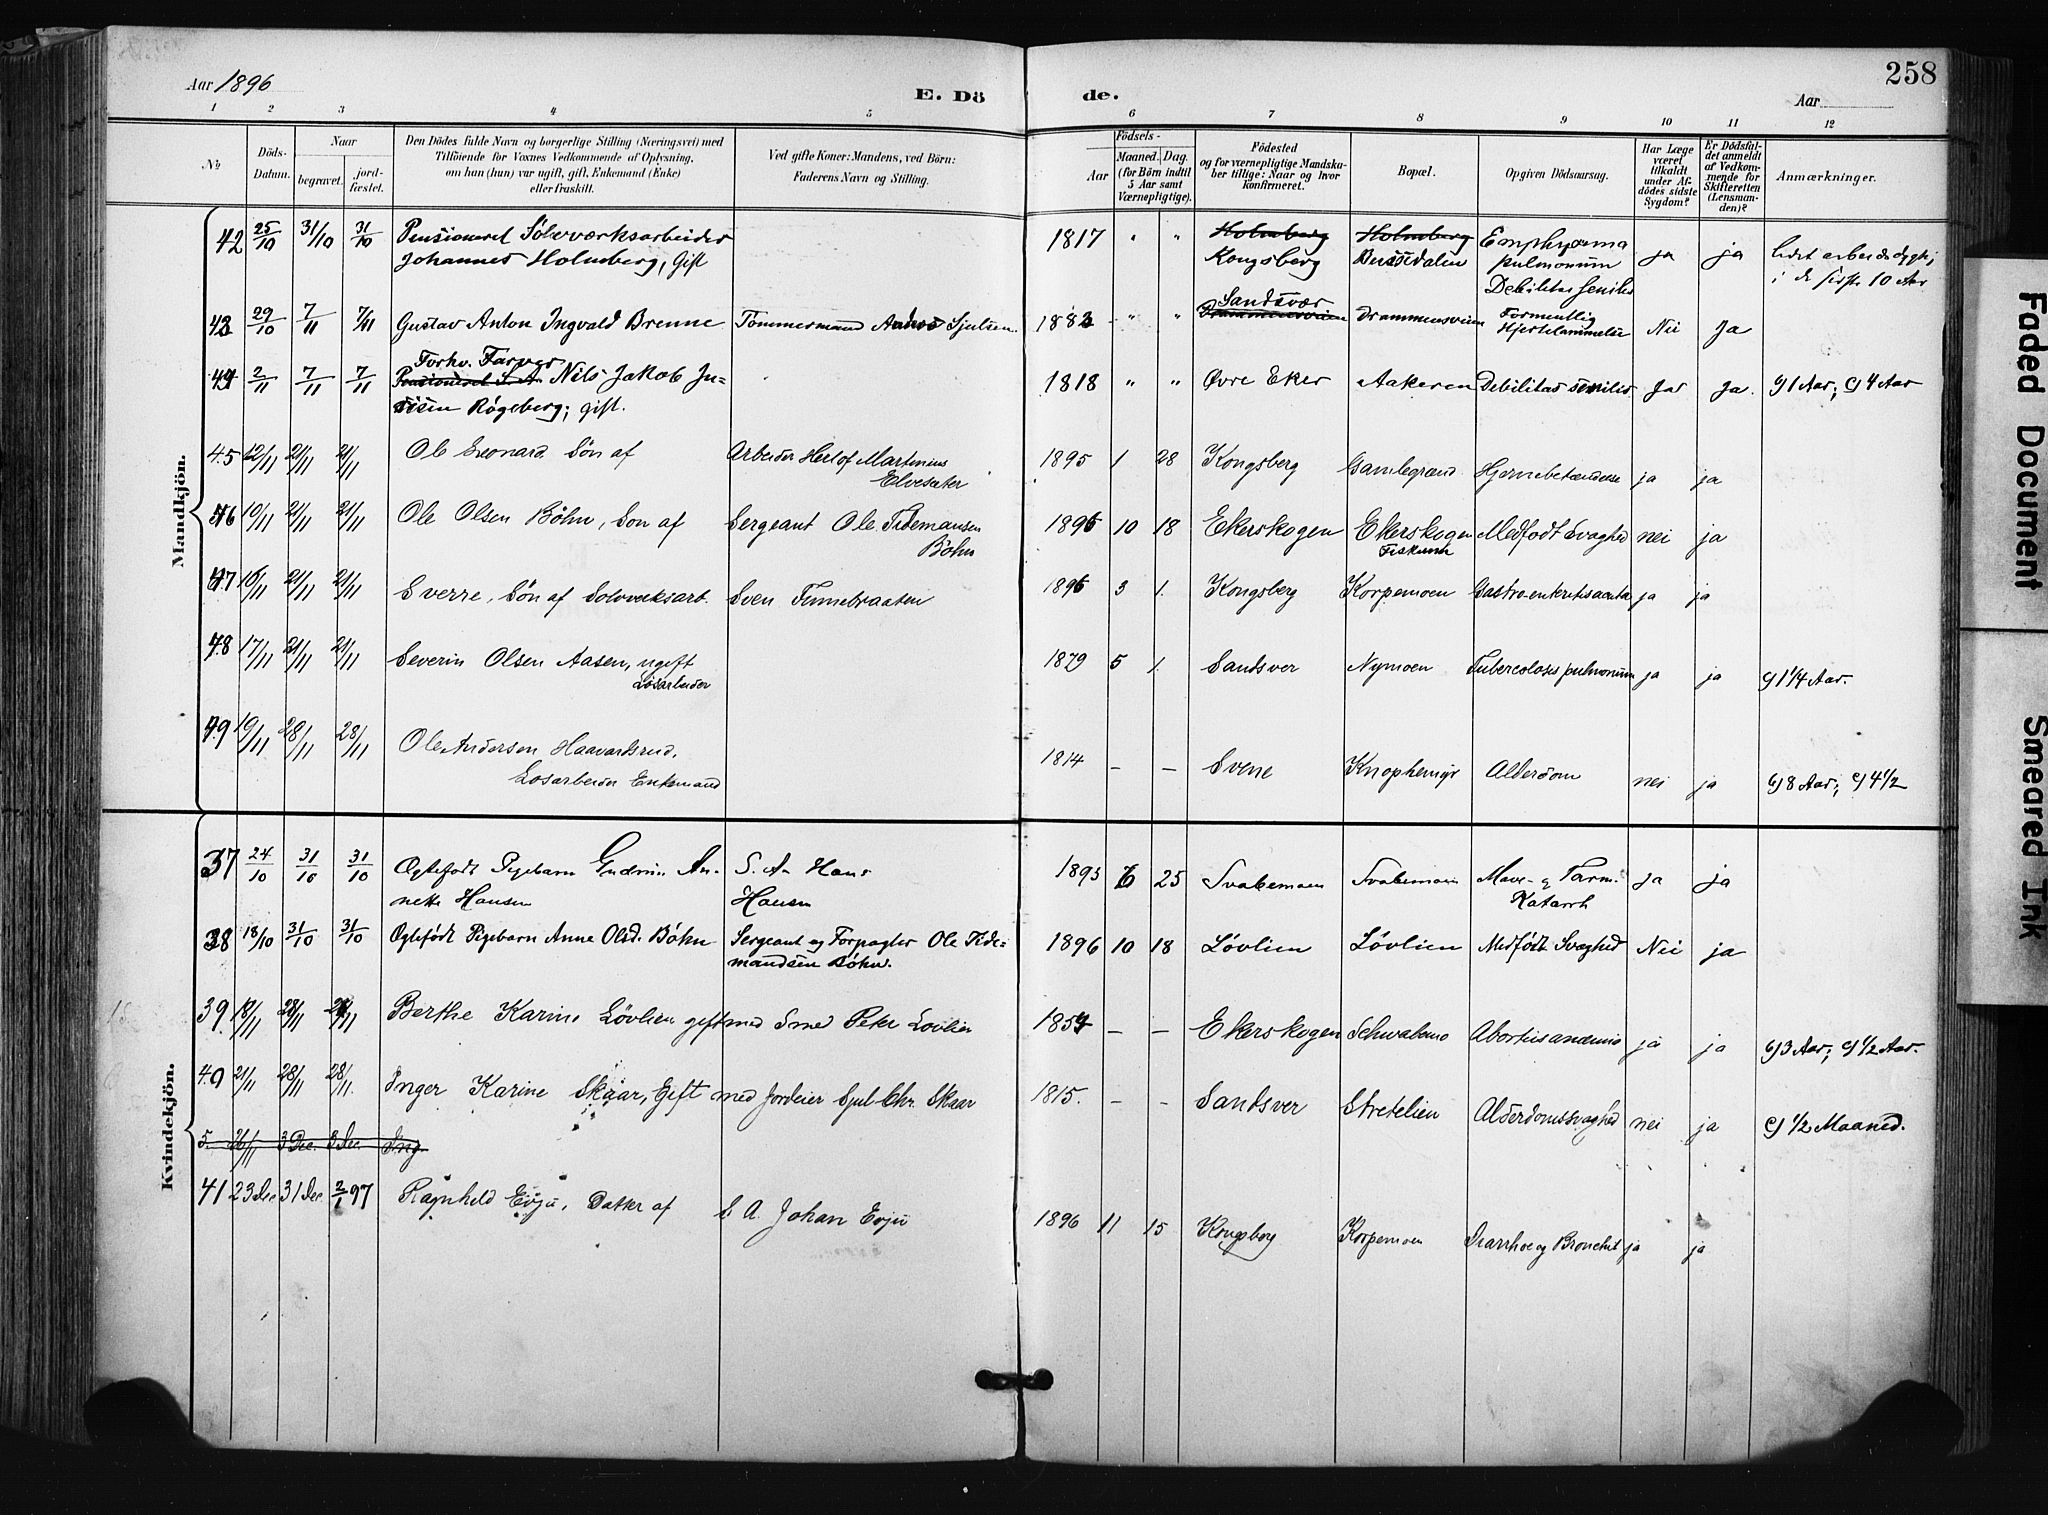 Aar 1896
E. Dö de.
Aar
258
1 2 3 4 5 6 7 8 9 10 11 12
No.
Döds-Datum.
Naar
begravet.
jord-fæstet.
Den Dödes fulde Navn og borgerlige Stilling (Næringsvei) med
Tilföiende for Voxnes Vedkommende af Oplysning,
om han (hun) var ugift, gift, Enkemand (Enke)
eller fraskilt.
Ved gifte Koner: Mandens, ved Börn:
Faderens Navn og Stilling.
Födsels-
Aar
Maaned. Dag.
(for Börn indtil
5 Aar samt
Værnepligtige).
Födested
og for værnepligtige Mandska-
ber tillige: Naar og hvor
konfirmeret.
Bopæl.
Opgiven Dödsaarsag.
Har Læge
været
tilkaldt
under Af-
dödes sidste
Sygdom?
Er Dödsfal-
det anmeldt
af Vedkom-
mende for
Skifteretten
(Lensman-
den)?
Anmærkninger.
Mandkjön.
42 25/10 31/10 31/10 Pensioneret Sölvværksarbeider 1817 " " Holmberg Holmberg Emphysema ja ja lidet arbeidsdygtig
Johannes Holmberg, gift Kongsberg pulmonum i de sidste 10 Aar
Debilitas senilis
Sandsvær
43 29/10 7/11 7/11 Gustav Anton Ingvald Brenne Tømmermand Anders Sjulsen 1883 " " Drammensveien Drammensveien Formentlig Nei Ja
Hjertelammelse
Forhv. Farver
44 2/11 7/11 7/11 Pensioneret S. A. Nils Jakob Ju- 1818 " " Øvre Eker Aakeren Debilitas senilis Ja Ja. G 1 Aar; S 4 Aar
Røgeberg; gift.
45 12/11 21/11 21/11 Ole Leonard Søn af Arbeider Herlof Martinius 1895 1 28 Kongsberg Gamlegrænd Hjernebetændelse ja ja
Elvesæter
46 10/11 21/11 21/11 Ole Olsen Bøhn, Søn af Sergeant Ole Tidemansen 1896 10 18 Ekerskogen Ekerskogen Medfødt Svaghed nei ja
Bøhn Fiskum
47 16/11 21/11 21/11 Sverre, Søn af Sølvverksarb. Sven Finnebraaten 1896 3 1. Kongsberg Korpemoen Gastro-enteritis acuta ja ja
48 17/11 21/11 21/11 Severin Olsen Aasen, ugift 1879 5 1. Sandsver Nymoen Tuberculosis pulmonum ja ja 1 1/4 Aar.
Løsarbeider
49 19/11 28/11 28/11 Ole Andersen Haavardsrud, 1814 – – Svene Knophemyr Alderdom nei ja 8 Aar; 4 1/2
Løsarbeider Enkemand
Kvindekjön.
37 24/10 31/10 31/10 Ægtefødt Pigebarn Gudrun An- S. A. Hans 1895 6 25 Svabemoen Svabemoen Mave- og Tarm- ja ja
nette Hansen Hansen Katarrh
38 18/10 31/10 31/10 Ægtefødt Pigebarn Anne Olsd. Bøhn Sergeant og Forpagter Ole Tide- 1896 10 18 Løvlien Løvlien Medfødt Svaghed Nei ja
mandsen Bøhn.
39 18/11 28/11 28/11 Berthe Karine Løvlien gift med Smed Peter Løvlien 1854 – – Ekerskogen Schwabemo ja ja 3 Aar; 1/2 Aar.
40 21/11 28/11 28/11. Inger Karine Skaar, Gift med Jordeier Sjul Chr. Skaar 1815. – – Sandsver Stretelien Alderdomssvaghed nei ja 1/2 Maaned.
5. 26/11 3 Dec. 3 Dec. Ing
41 23 Dec 31 Dec. 2/1 97 Ragnhild Evju, Datter af S. A. Johan Evju 1896 11 15 Kongsberg Korpemoen Diarrhoe og Bronchit ja ja
Faded Document
Smeared Ink